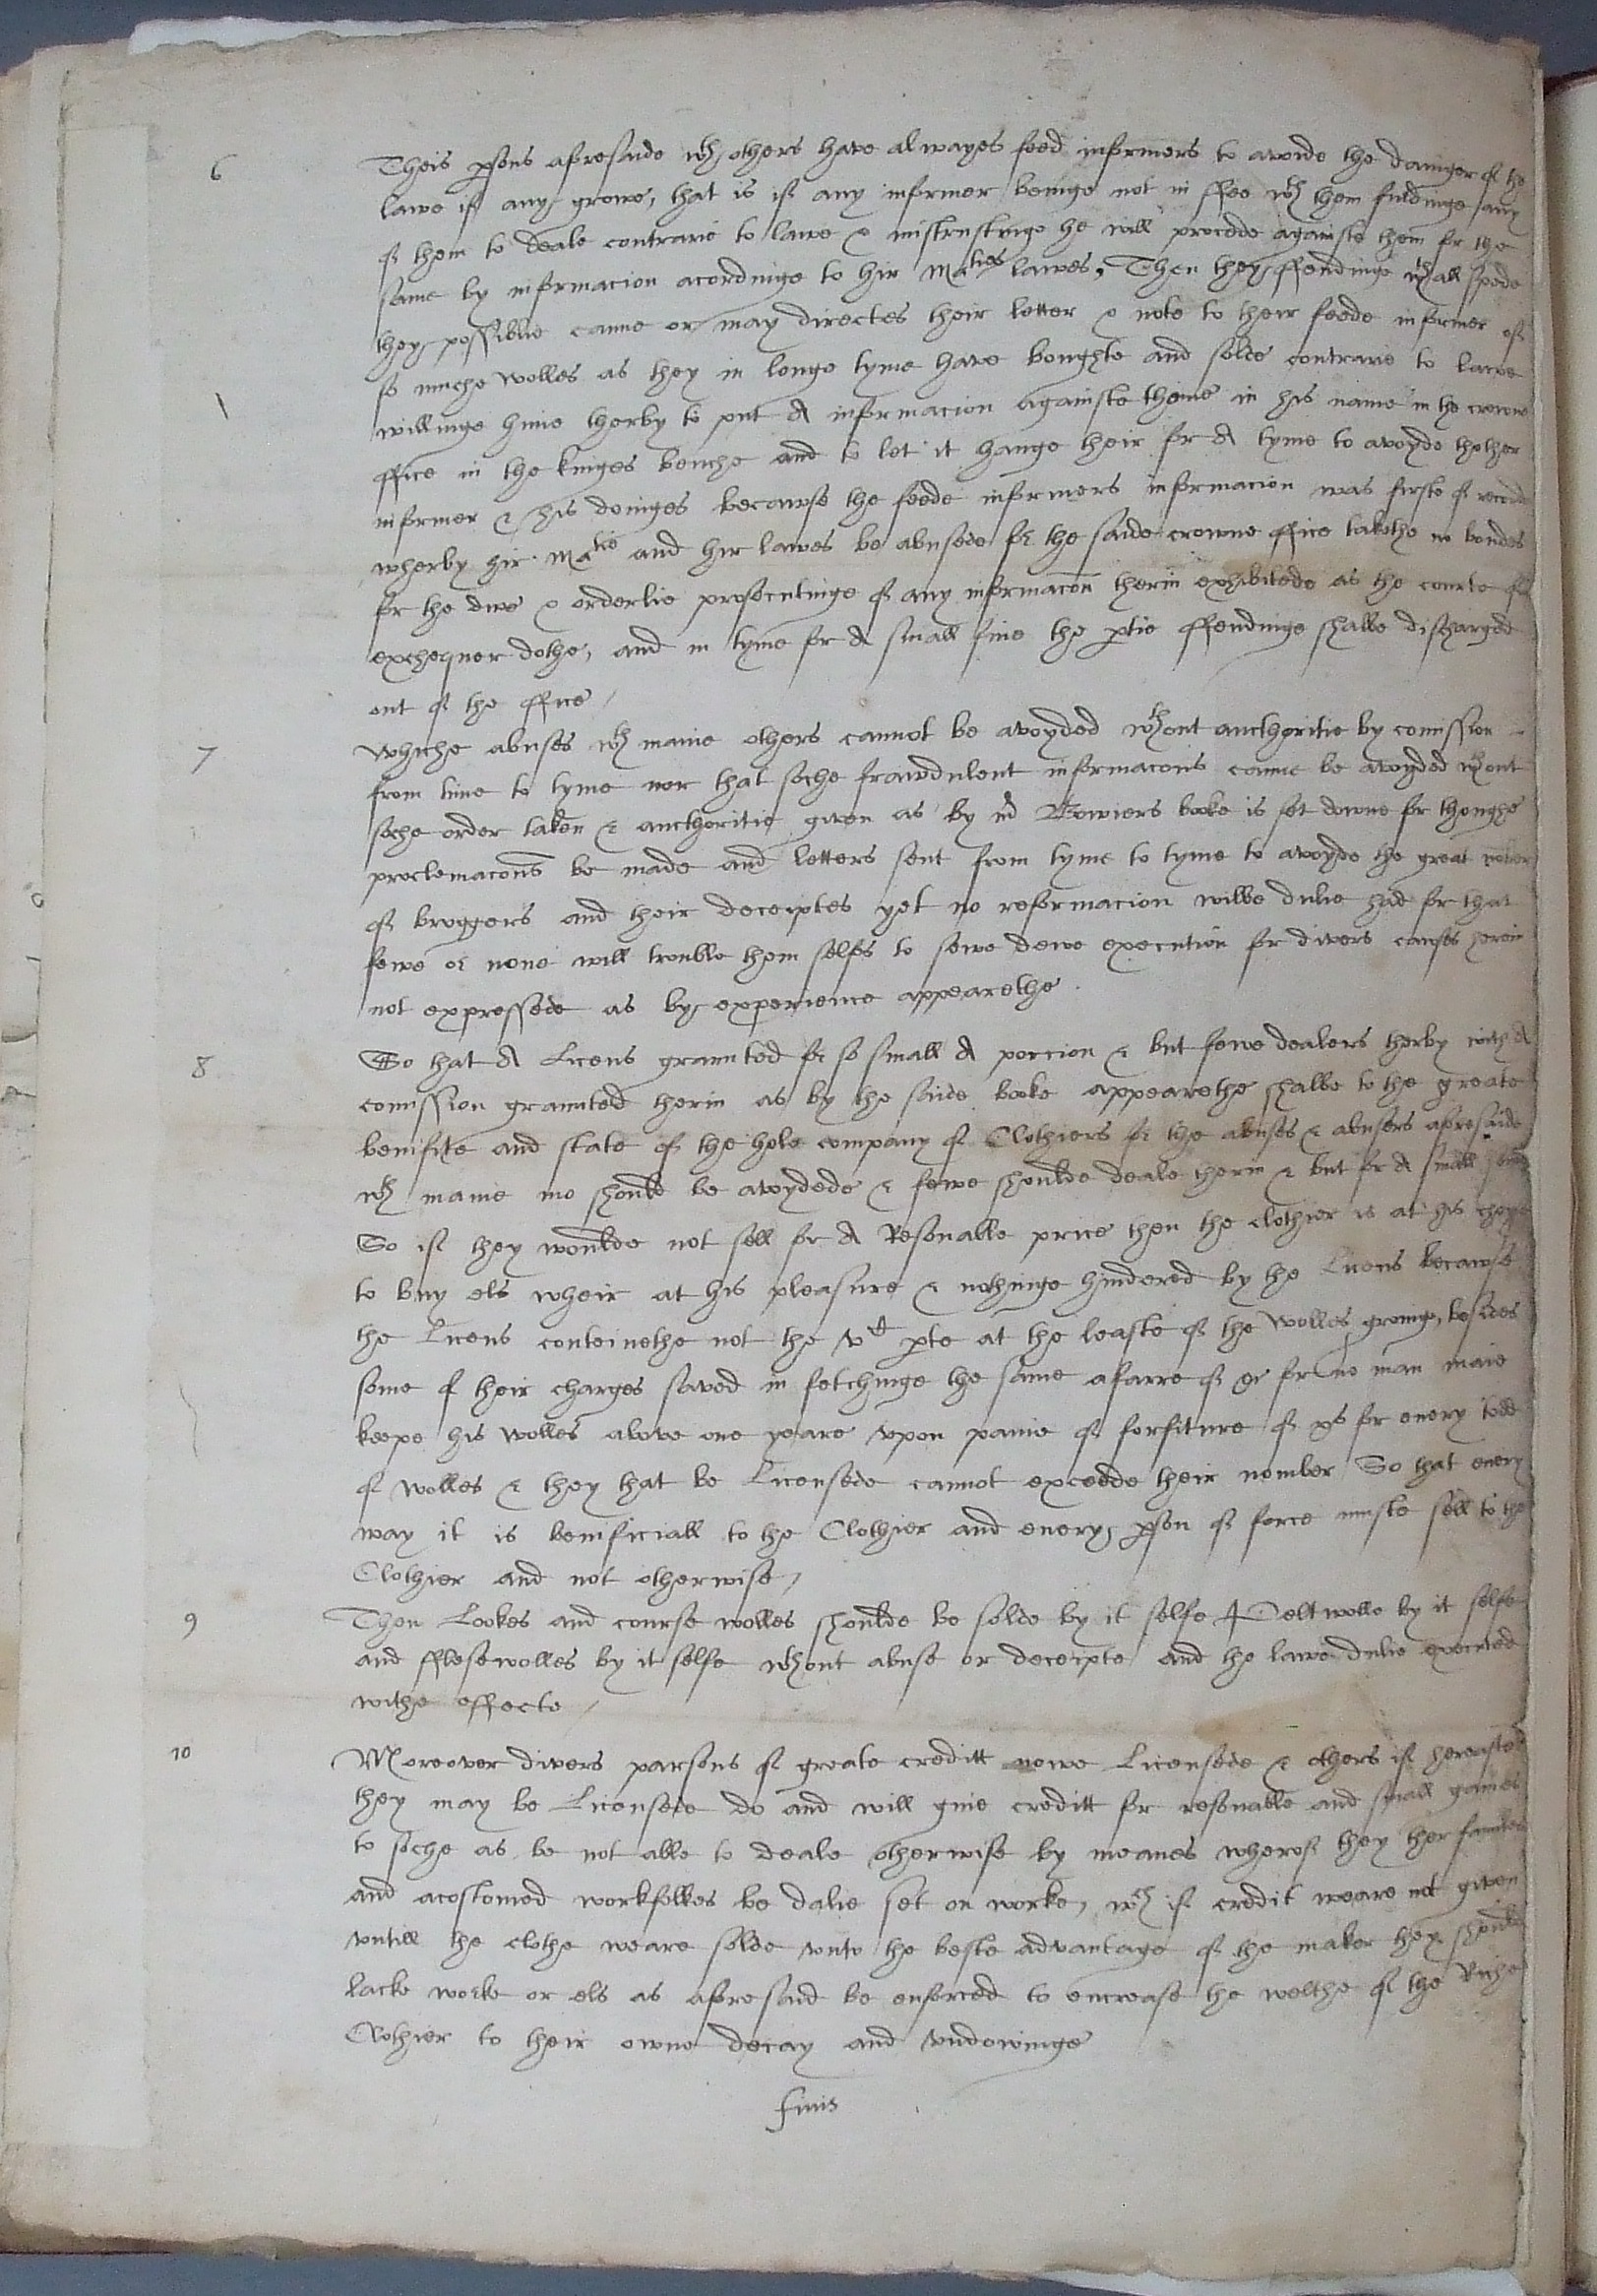 6 Theis psons aforesaide wth others have alwayes feed informers to avoide the daunger of the
lawe if any growe, that is if any informer beinge not in ffee wth them findinge any
of them to deale contrarie to lawe & mistrustinge he will procede againste them for the
same by informacion acordinge to hir Maties lawes, Then they offendinge wth all spede
they possiblie canne or may directes their letter & note to their feede informer of
so muche wolles as they in longe tyme have boughte and solde contrarie to lawe
willinge hime therby to put A informacion againste theme in his name in the crowne
office in the kinges benche and to let it hange their for A tyme to avoyde thother
informer & his doinges becawse the feede informers informacion was firste of recorde
wherby hir Matie and hir lawes be abusede for the saide crowne office takethe no bondes
for the due & orderlie prosecutinge of any informacon therin exhibitede as the courte of
exchequer dothe, and in tyme for A small fine the ptie offendinge shalbe discharged
out of the office
7 Whiche abuses wth manie others cannot be avoyded wthout aucthoritie by comission
from time to tyme nor that soche frawdulent informacons canne be avoyded wthout
soche order taken & aucthoritie given as by Bowiers booke is set downe for thoughe
proclemacons be made and letters sent from tyme to tyme to avoyde the great nomber
of broggers and their deceiptes yet no reformacion wilbe dulie had for that
fewe or none will trouble them selfes to sewe dewe execution for divers causes herein
not expressede as by experience appearethe
8 So that A Licens graunted for so small A porcion & but fewe dealers therby with A
comission graunted therin as by the saide booke appearethe shalbe to the greate
benifite and state of the hole company of Clothiers for the abuses & abusers aforesaide
wth manie mo should be avoydede & fewe shoulde deale therin & but for A small some
So if they woulde not sell for A Resonable price then the clothier is at his choyse
to buy els wheir at his pleasure & nothinge hindered by the Licens becawse
the Licens conteinethe not the vth pte at the leaste of the wolles growinge, besides
some of their charges saved in fetchinge the same afarre of & for no man maie
keepe his wolles above one yeare vpon paine of forfiture of xs for euery todd
of wolles & they that be Licensede cannot excedde their nomber So that euery
way it is benificiall to the Clothier and euery pson of force muste sell to the
Clothier and not otherwise,
9 Then Lockes and course wolles shoulde be solde by it selfe Peltwolle by it selfe
and fflesewolles by it selfe wthout abuse or deceipte and the lawe dulie executed
withe effecte
10 Moreover divers parsons of greate creditt nowe Licensede & others if hereafter
they may be Licensede do and will give creditt for resonable and small gaines
to soche as be not able to deale otherwise by meanes wherof they ther families
and acostomed workfolkes be dalie set on worke, wch if credit weare not given
vntill the clothe weare solde vnto the beste advantage of the maker they shoulde
lacke worke or els as aforesaid be enforced to encrease the welthe of the Riche
Clothier to their owne decay and vndowinge
finis